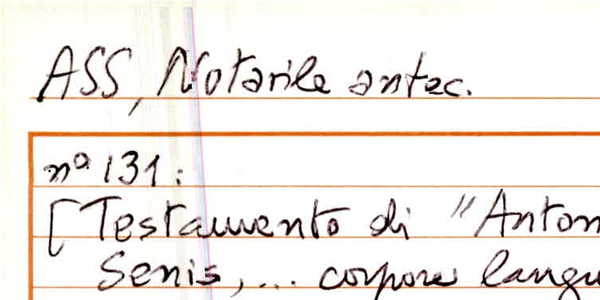 ASS, Notarile antec.
nº 131:
[Testamento di "Anton
Senis, ... corpore langu